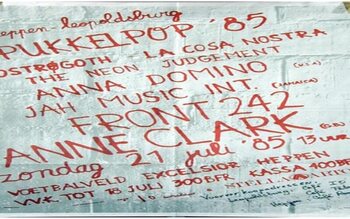 heppen leopoldsburg
PUKKELPOP '85
OSTROGOTH LA COSA NOSTRA
THE NEON JUDGEMENT
ANNA DOMINO (U.S.A)
JAH MUSIC INT. (JAMAICA)
FRONT 242
ANNE CLARK (G.B)
zondag 21 juli '85 13 uur
VOETBALVELD EXCELSIOR HEPPEN
V.V.K. TOT 18 JULI 300BFR KASSA 400BFR